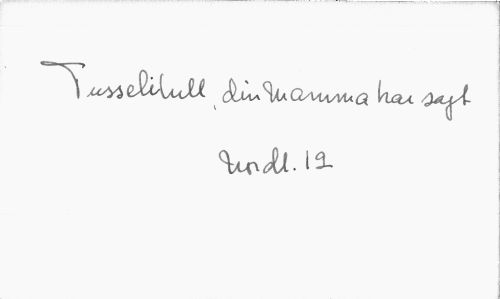 Tusselitull, din Mamma har sagt
Nordl. 19